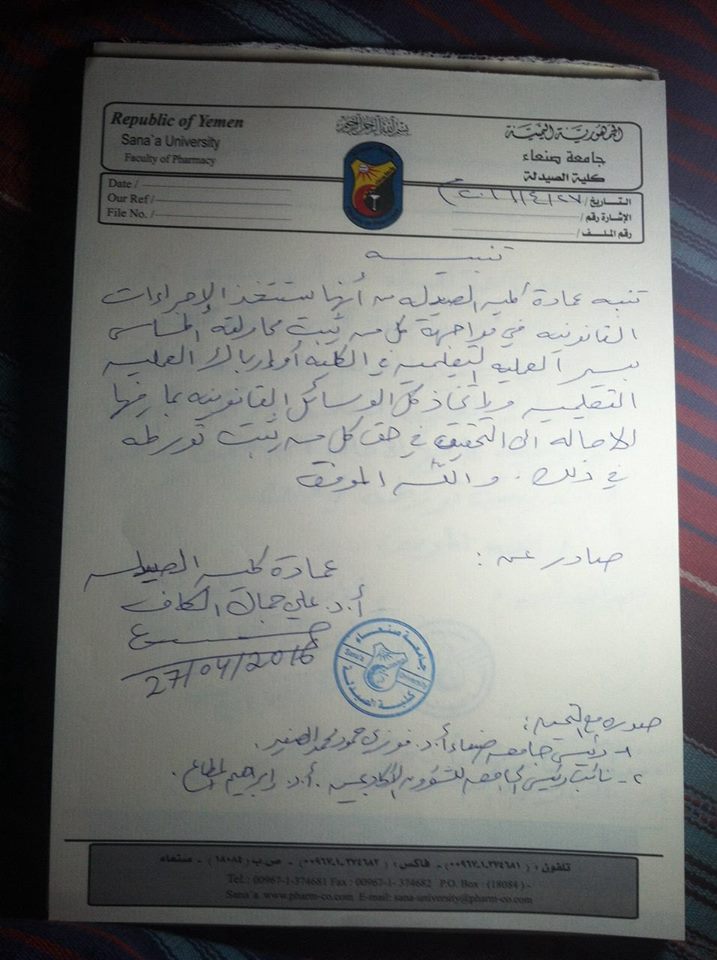 بسم الله الرحمن الرحيم
Republic of Yemen
Sana`a University
Faculty of Pharmacy
الجمهورية اليمنية
جامعة صنعاء
كلية الصيدلة
Date /
Our Ref /
File No. /
التاريخ / ٢٠١٦/٤/٢٧
الإشارة رقم /
رقم الملف /
تنبيه
تنبه عمادة كلية الصيدله من أنها ستتخذ الإجراءات
القانونيه في مواجهة كل من يثبت محاولته المساس
بسير العمليه التعليميه في الكليه أو إرباك العمليه
التعليميه واتخاذ كل الوسائل القانونيه بما فيها
الاحاله الى التحقيق في حق كل من يثبت تورطه
في ذلك . والله الموفق
صادر عن :
عمادة كليه الصيدله
أ.د علي جمال الكاف
27/04/2016
جامعة صنعاء
Sana'a University
كلية الصيدلة
صوره مع التحيه :
١- رئيس جامعه صنعاء أ.د. فوزي حمود محمد الصغير .
٢- نائب رئيس الجامعه للشؤون الاكاديميه . أ.د إبراهيم المطاع .
تلفون : (٠٠٩٦٧-١-٣٧٤٦٨١) - فاكس : (٠٠٩٦٧-١-٣٧٤٦٨٢) - ص.ب (١٨٠٨٤) - صنعاء
Tel.: 00967-1-374681 Fax : 00967-1- 374682 P.O. Box : (18084 ) -
Sana`a www.pharm-co.com E-mail: sana-university@pharm-co.com